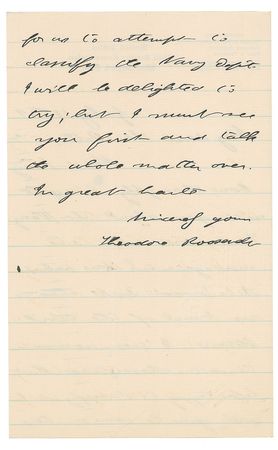 for us to attempt to
classify the Navy Dept.
I will be delighted to
try; but I must see
you first and talk
the whole matter over.
In great haste
Sincerely yours
Theodore Roosevelt